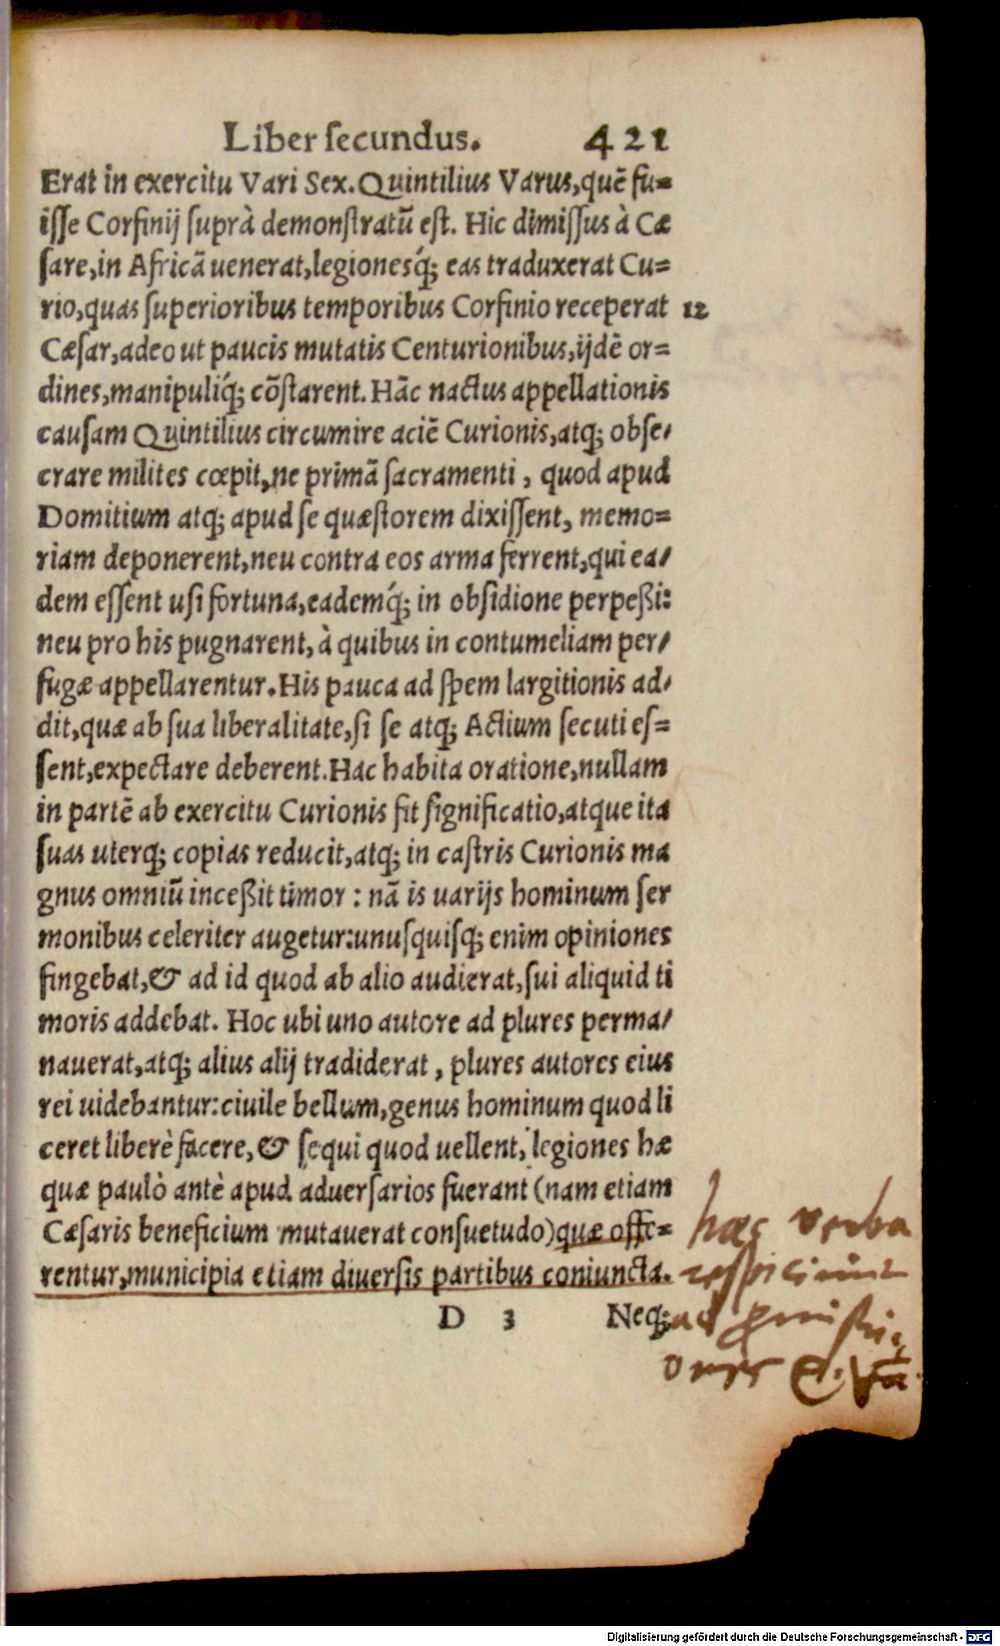 Liber secundus. 421
Erat in exercitu Vari Sex. Quintilius Varus, quē fu=
isse Corfinij suprà demonstratū est. Hic dimissus à Cæ
sare, in Africā uenerat, legionesq́; eas traduxerat Cu=
rio, quas superioribus temporibus Corfinio receperat 12
Cæsar, adeo ut paucis mutatis Centurionibus, ijdē or=
dines, manipuliq́; cōstarent. Hāc nactus appellationis
causam Quintilius circumire aciē Curionis, atq; obse/
crare milites cœpit, ne primā sacramenti, quod apud
Domitium atq; apud se quæstorem dixissent, memo=
riam deponerent, neu contra eos arma ferrent, qui ea/
dem essent usi fortuna, eademq́; in obsidione perpeßi:
neu pro his pugnarent, à quibus in contumeliam per/
fugæ appellarentur. His pauca ad spem largitionis ad/
dit, quæ ab sua liberalitate, si se atq; Actium secuti es=
sent, expectare deberent. Hac habita oratione, nullam
in partē ab exercitu Curionis fit significatio, atque ita
suas uterq; copias reducit, atq; in castris Curionis ma
gnus omniū inceßit timor: nā is uarijs hominum ser
monibus celeriter augetur: unusquisq; enim opiniones
fingebat, & ad id quod ab alio audierat, sui aliquid ti
moris addebat. Hoc ubi uno autore ad plures perma/
nauerat, atq; alius alij tradiderat, plures autores eius
rei uidebantur: ciuile bellum, genus hominum quod li
ceret liberè facere, & sequi quod uellent, legiones hæ
quæ paulò antè apud aduersarios fuerant (nam etiam
Cæsaris beneficium mutauerat consuetudo) quæ offe=
rentur, municipia etiam diuersis partibus coniuncta.
D 3 Neq;
haec verba
respiciunt
ad
ones
Digitalisierung gefördert durch die Deutsche Forschungsgemeinschaft - DFG